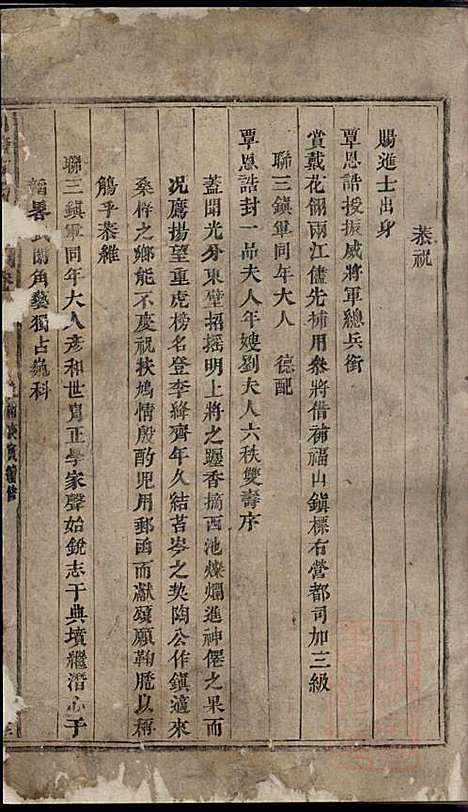 恭祝
賜進士出身
覃恩誥授振威將軍總兵銜
賞戴花翎兩江儘先補用參將借補福山鎮標右營都司加三級
聯三鎮軍同年大人 德配
覃恩誥封一品夫人年嫂劉夫人六秩雙壽序
蓋聞光分東壁招搖明上將之躔香摘西池燦爛進神僊之果而
况鷹揚望重虎榜名登李絳齊年久結苔岑之契陶公作鎮適來
桑梓之鄉能不慶祝扶鳩情殷酌兕用郵函而獻頌願鞠𦜕以稱
觴乎恭維
聯三鎮軍同年大人彥和世胄正學家聲始銳志于典墳繼潛心乎
韜畧 闈角藝獨占巍科